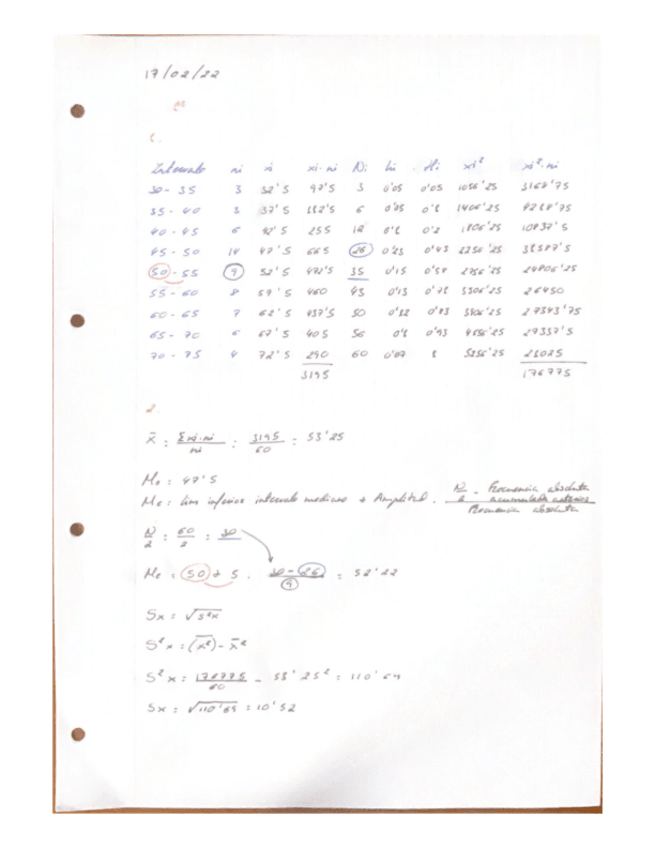 17/02/22
1.
Intervalo ni xi xi·ni Ni hi Hi xi² xi²·ni
30 - 35 3 32'5 97'5 3 0'05 0'05 1056'25 3168'75
35 - 40 3 37'5 112'5 6 0'05 0'1 1406'25 4218'75
40 - 45 6 42'5 255 12 0'1 0'2 1806'25 10837'5
45 - 50 14 47'5 665 26 0'23 0'43 2256'25 31587'5
50 - 55 9 52'5 472'5 35 0'15 0'58 2756'25 24806'25
55 - 60 8 57'5 460 43 0'13 3306'25 26450
60 - 65 7 62'5 437'5 50 0'12 0'83 3906'25 27343'75
65 - 70 6 67'5 405 56 0'1 0'93 4556'25 27337'5
70 - 75 4 72'5 290 60 0'07 1 5256'25 21025
3195 176775
2.
x̄ : Σxi·ni / ni : 3195 / 60 : 53'25
Mo : 47'5
Me : lim inferior intervalo mediano + Amplitud · N/2 - Frecuencia absoluta acumulada anterior / Frecuencia absoluta
N/2 : 60/2 : 30
Me = 50 + 5 · 30 - 26 / 9 = 52'22
Sx : √S²x
S²x : (x̄²) - x̄²
S²x : 176775 / 60 - 53'25² = 110'69
Sx : √110'69 = 10'52